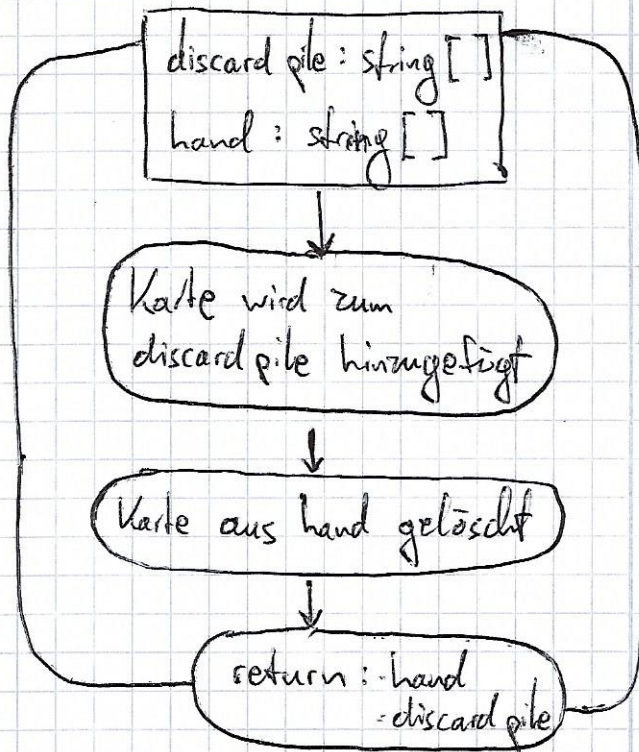 discard pile : string [ ]
hand : string [ ]
Karte wird zum
discard pile hinzugefügt
Karte aus hand gelöscht
return : -hand
-discard pile